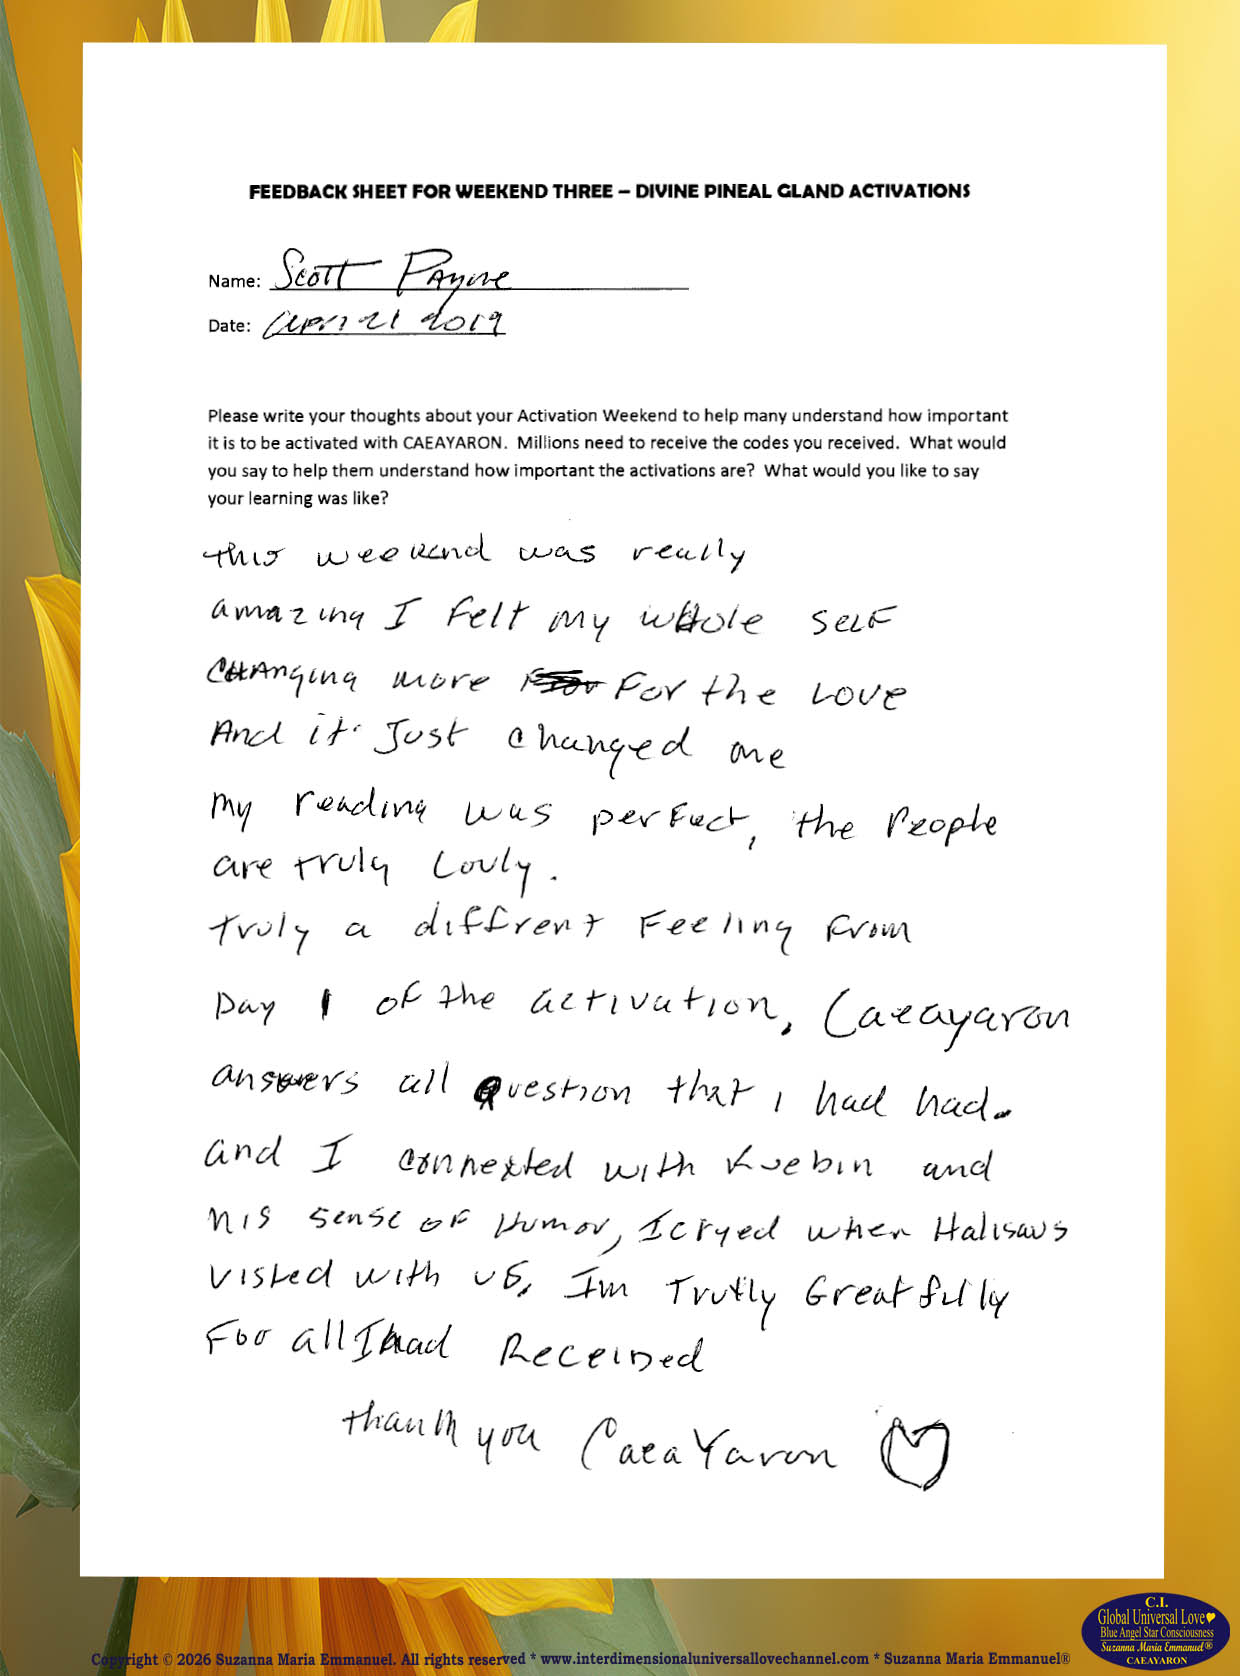 FEEDBACK SHEET FOR WEEKEND THREE – DIVINE PINEAL GLAND ACTIVATIONS
Name: Scott Payne
Date: April 21 2019
Please write your thoughts about your Activation Weekend to help many understand how important
it is to be activated with CAEAYARON.  Millions need to receive the codes you received.  What would
you say to help them understand how important the activations are?  What would you like to say
your learning was like?
this weekend was really
amazing I felt my whole self
changing more for the love
And it Just changed me
my reading was perfect, the People
are truly Louly.
truly a diffrent Feeling From
Day 1 of the activation, Caeayaron
answers all question that i had had.
and I connexted with Kuebin and
his sense of Humor, I cryed when Halisaus
visted with us, Im Trutly Greatfully
For all I had Received
thank you CaeaYaron
C.I.
Global Universal Love
Blue Angel Star Consciousness
Suzanna Maria Emmanuel®
CAEAYARON
Copyright © 2026 Suzanna Maria Emmanuel. All rights reserved * www.interdimensionaluniversallovechannel.com * Suzanna Maria Emmanuel®